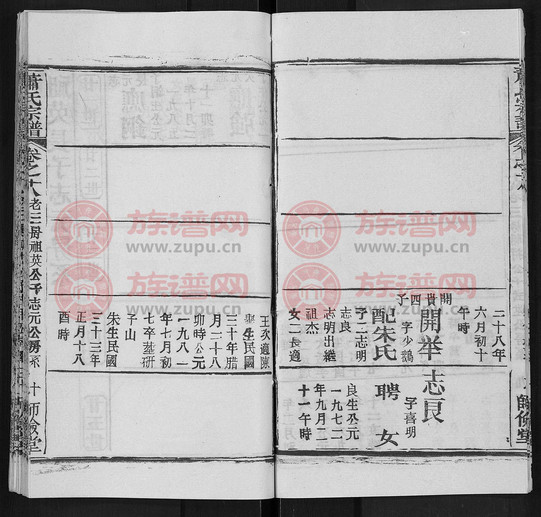 二十八年
六月初十
午時
開貴四子
開举
字少鹄
配朱氏
字二志明
志良
志明出繼
祖杰
女二長適
志良
字喜明
聘女
良生公元
一九七二
年九月二
十一午時
王次適陳
舉生民國
三十年腊
月二十八
卯時公元
一九八一
年七月初
七卒墓研
子山
朱生民國
三十三年
正月十八
酉時
蕭氏宗譜
卷之十八
老三房祖英公子志元公房系
十
師儉堂
師儉堂
族谱网
www.zupu.cn
族谱网
www.zupu.cn
族谱网
www.zupu.cn
族谱网
www.zupu.cn